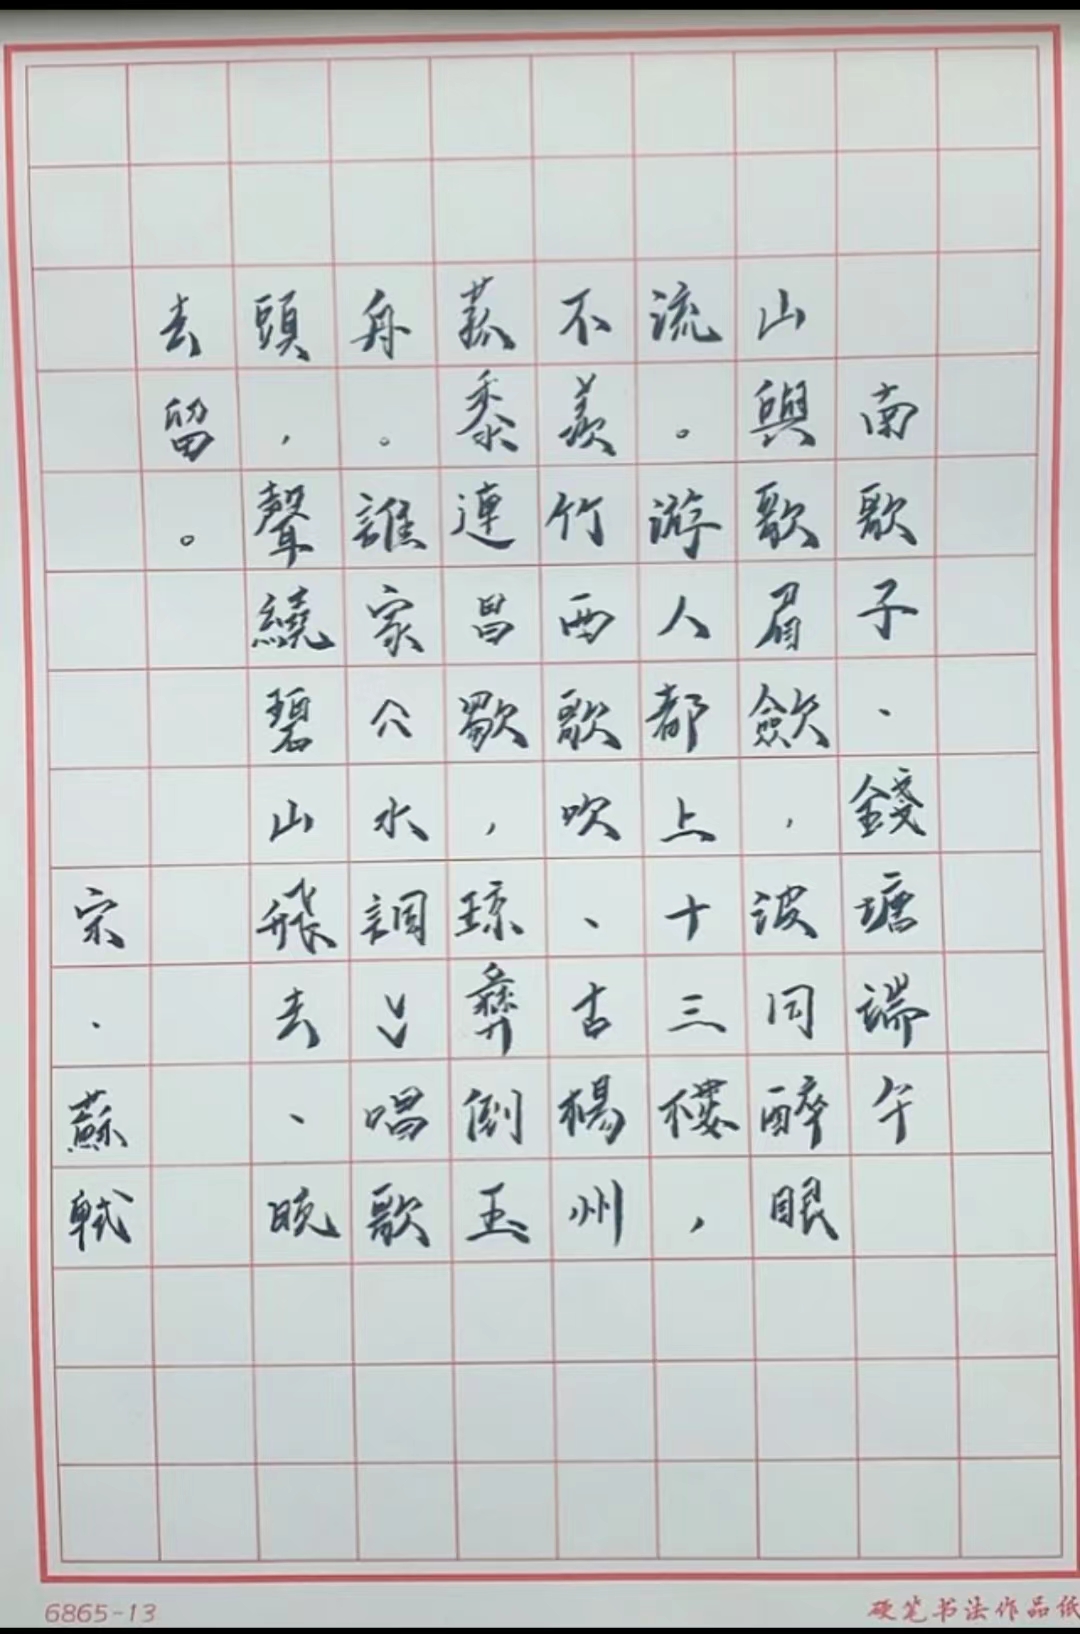 南歌子、錢塘端午
山與歌眉歛，波同醉眼
流。游人都上十三樓，
不羨竹西歌吹、古楊州
菰黍連昌歜，琼彝倒玉
舟。誰家《水調》唱歌
頭，聲繞碧山飛去、晚
去留。
宋·蘇軾
6865-13
硬笔书法作品纸